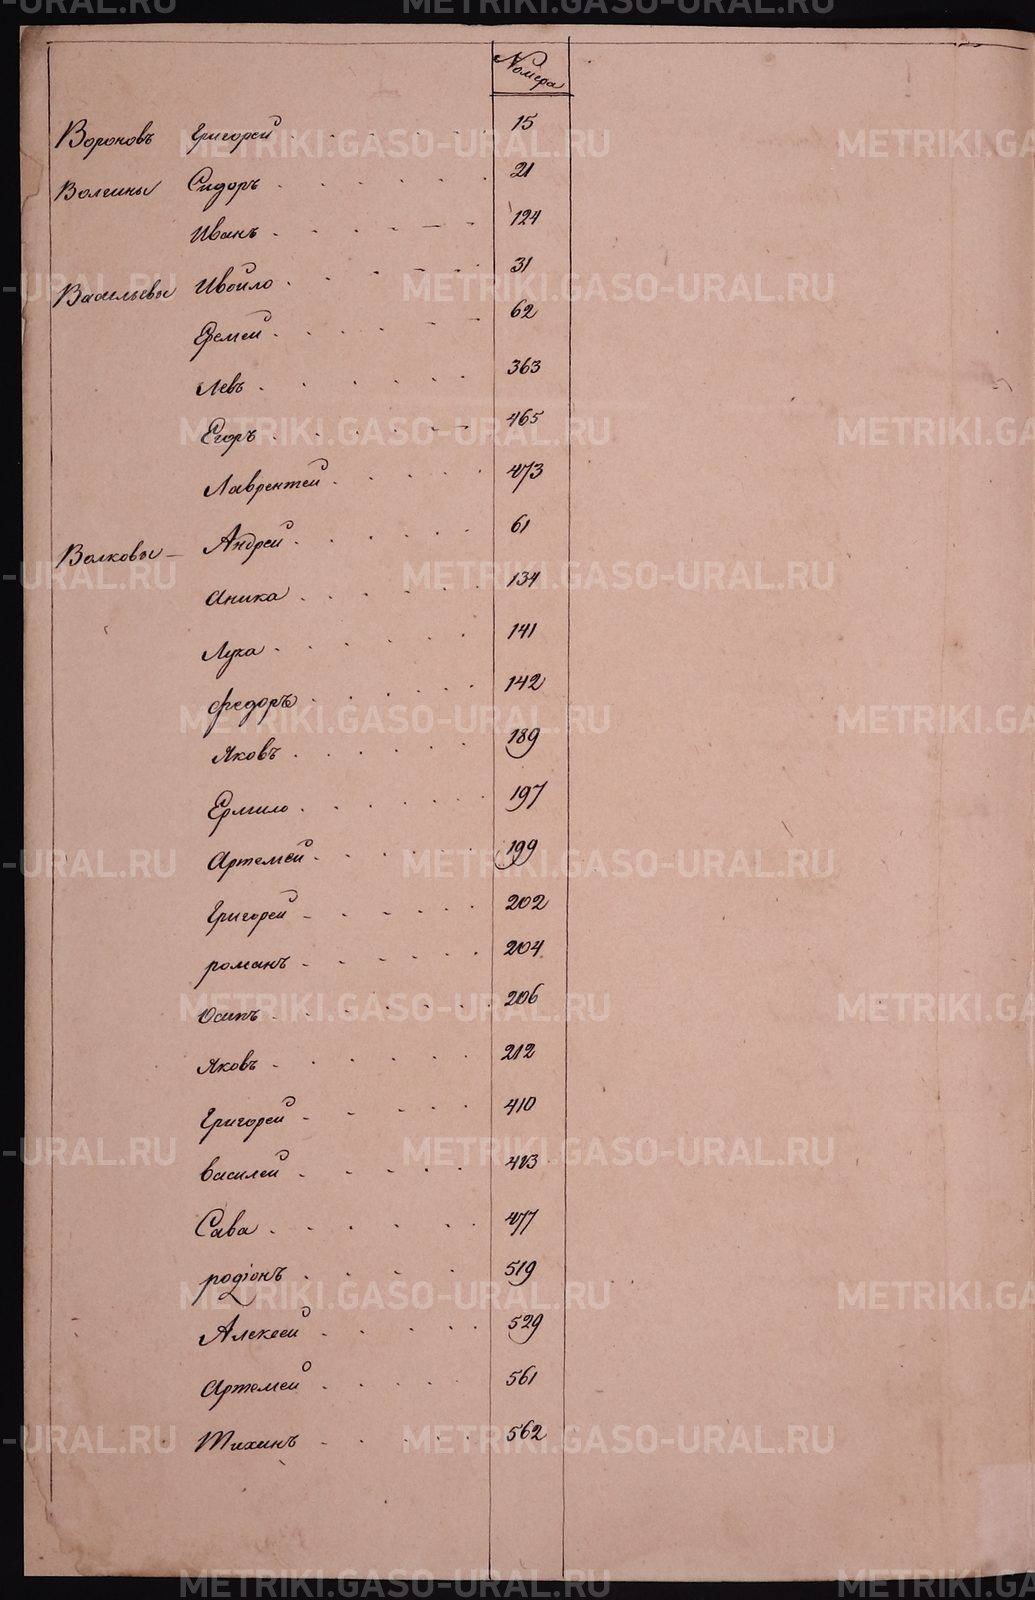 Номера
Вороновъ Григорей 15
Волгины Сидоръ 21
Иванъ 124
Васильевы Ивойло 31
Еремей 62
Левъ 363
Егоръ 465
Лаврентей 473
Волковы Андрей 61
Аника 134
Лука 141
федоръ 142
Яковъ 189
Ермило 197
Артемей 199
Григорей 202
романъ 204
Осипъ 206
Яковъ 212
Григорей 410
василей 413
Сава 477
родіонъ 519
Алексей 529
Артемей 561
Тихинъ 562
METRIKI.GASO-URAL.RU